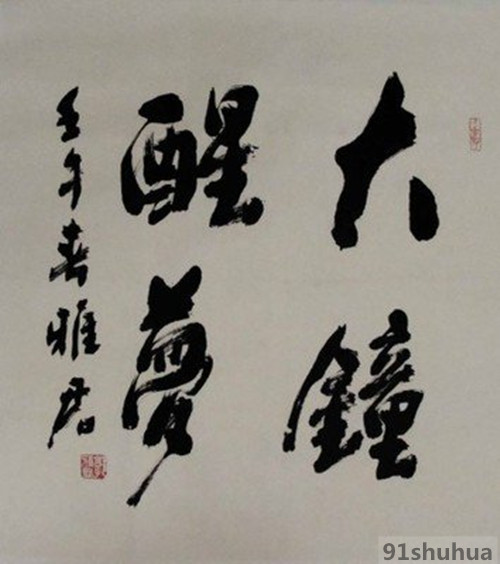 大鐘
醒夢
壬午春雅君
91shuhua